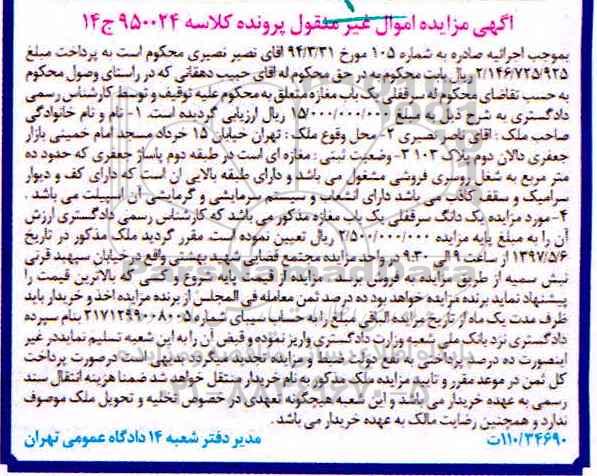 آگهی مزایده اموال غیر منقول پرونده کلاسه ۹۵۰۰۲۴ ج۱۴
بموجب اجرائیه صادره به شماره ۱۰۵ مورخ ۹۴/۳/۳۱ اقای نصیر نصیری محکوم است به پرداخت مبلغ
۲/۱۴۶/۷۲۵/۹۲۵ ریال بابت محکوم به در حق محکوم له اقای حبیب دهقانی که در راستای وصول محکوم
به حسب تقاضای محکوم له سرقفلی یک باب مغازه متعلق به محکوم علیه توقیف و توسط کارشناس رسمی
دادگستری به شرح ذیل به مبلغ ۱۵/۰۰۰/۰۰۰/۰۰۰ ریال ارزیابی گردیده است. ۱- نام و نام خانوادگی
صاحب ملک : اقای ناصر نصیری ۲- محل وقوع ملک : تهران خیابان ۱۵ خرداد مسجد امام خمینی بازار
جعفری دالان دوم پلاک ۱۰۳ ۳- وضعیت ثبتی : مغازه ای است در طبقه دوم پاساژ جعفری که حدود ده
متر مربع به شغل روسری فروشی مشغول می باشد و دارای طبقه بالایی ان است که دارای کف و دیوار
سرامیک و سقف کاذب می باشد دارای انشعاب و سیستم سرمایشی و گرمایشی آن اسپیلت می باشد .
۴- مورد مزایده یک دانگ سرقفلی یک باب مغازه مذکور می باشد که کارشناس رسمی دادگستری ارزش
آن را به مبلغ پایه مزایده ۲/۵۰۰/۰۰۰/۰۰۰ ریال تعیین نموده است. مقرر گردید ملک مذکور در تاریخ
۱۳۹۷/۵/۶ از ساعت ۹ الی ۹:۳۰ در واحد مزایده مجتمع قضایی شهید بهشتی واقع در خیابان سپهبد قرنی
نبش سمیه از طریق مزایده به فروش برسد . مزایده از قیمت پایه شروع و کسی که بالاترین قیمت را
پیشنهاد نماید برنده مزایده خواهد بود ده درصد ثمن معامله فی المجلس از برنده مزایده اخذ و خریدار باید
ظرف مدت یک ماه از تاریخ مزایده الباقی مبلغ را به حساب سیبای شماره ۲۱۷۱۲۹۹۰۰۸۰۰۵ بنام سپرده
دادگستری نزد بانک ملی شعبه وزارت دادگستری واریز نموده و قبض ان را به این شعبه تسلیم نماید در غیر
اینصورت ده درصد پرداختی به نفع دولت ضبط و مزایده تجدید میگردد بدیهی است درصورت پرداخت
کل ثمن در موعد مقرر و تایید مزایده ملک مذکور به نام خریدار منتقل خواهد شد ضمنا هزینه انتقال سند
رسمی به عهده خریدار می باشد و این شعبه هیچگونه تعهدی در خصوص تخلیه و تحویل ملک موصوف
ندارد و همچنین رضایت مالک به عهده خریدار می باشد.
۱۱۰/۳۴۶۹۰ت
مدیر دفتر شعبه ۱۴ دادگاه عمومی تهران
ParsNamadData